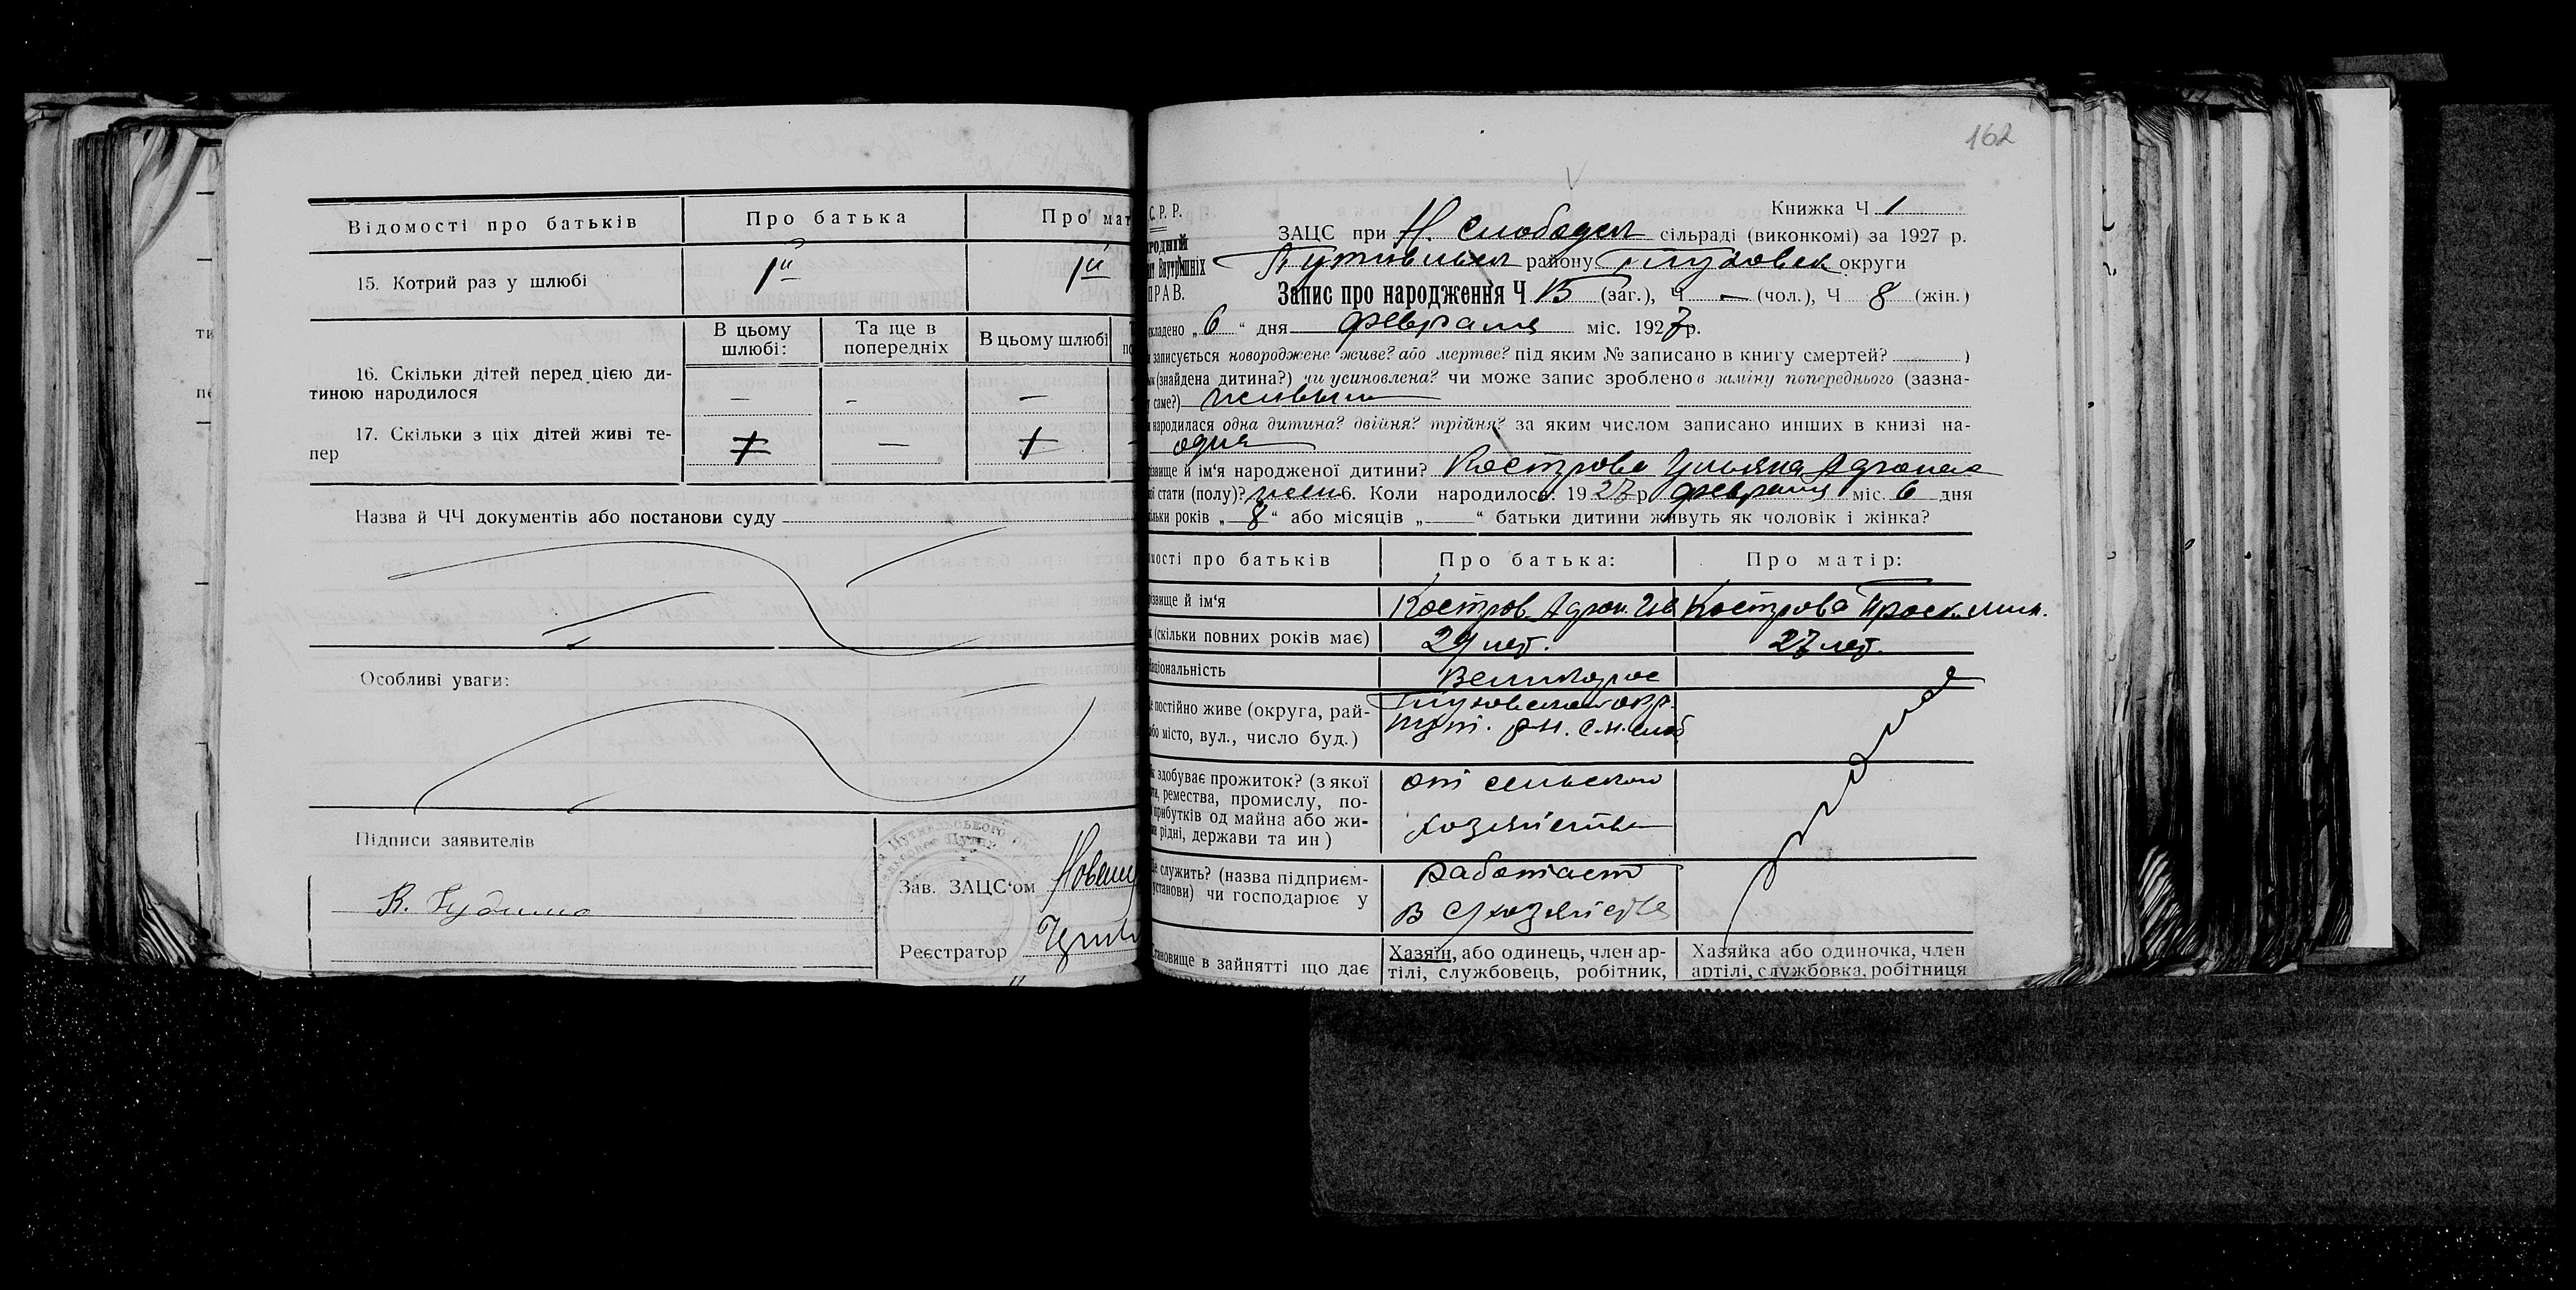 Відомості про батьків
Про батька
Про мат
15. Котрий раз у шлюбі
1й
1й
В цьому шлюбі:
Та ще в попередніх
В цьому шлюбі
16. Скільки дітей перед цією ди-
тиною народилося
— - —
17. Скільки з ціх дітей живі те-
пер
—
Назва й ЧЧ документів або постанови суду
Особливі уваги:
Підписи заявителів
Зав. ЗАЦС'ом
Реєстратор
162
Книжка Ч 1
С. Р. Р.
ЗАЦС при Н. Слободск сільраді (виконкомі) за 1927 р.
Путивльск району Глуховск округи
ПРАВ.
Запис про народження Ч 15 (заг.), Ч — (чол.), Ч 8 (жін.)
кладено „6" дня февраля міс. 1927 р.
записується новороджене живе? або мертве? під яким № записано в книгу смертей? )
(знайдена дитина?) чи усиновлена? чи може запис зроблено в заміну попереднього (зазна-
саме?) живым
народилася одна дитина? двійня? трійня? за яким числом записано инших в книзі на-
одна
звище й ім'я народженої дитини? Кострова Ульяна Адронов
стати (полу)? жен 6. Коли народилось: 1927 р февраля міс. 6 дня
льки років „8" або місяців „—" батьки дитини живуть як чоловік і жінка?
мості про батьків
Про батька:
Про матір:
звище й ім'я
Костров Адрон. Ив
Кострова Проск. Мих.
(скільки повних років має)
29 лет.
27 лет.
аціональність
Великорос
постійно живе (округа, рай-
або місто, вул., число буд.)
Глуховского окр.
Пут. р-н. с. Н. Слоб
здобуває прожиток? (з якої
ремества, промислу, по-
прибутків од майна або жи-
рідні, держави та ин)
от сельского
хозяйства
служить? (назва підприєм-
установи) чи господарює у
Работает
в с/хозяйстве
тановище в зайнятті що дає
Хазяїн, або одинець, член ар-
тілі, службовець, робітник,
Хазяйка або одиночка, член
артілі, службовка, робітниця